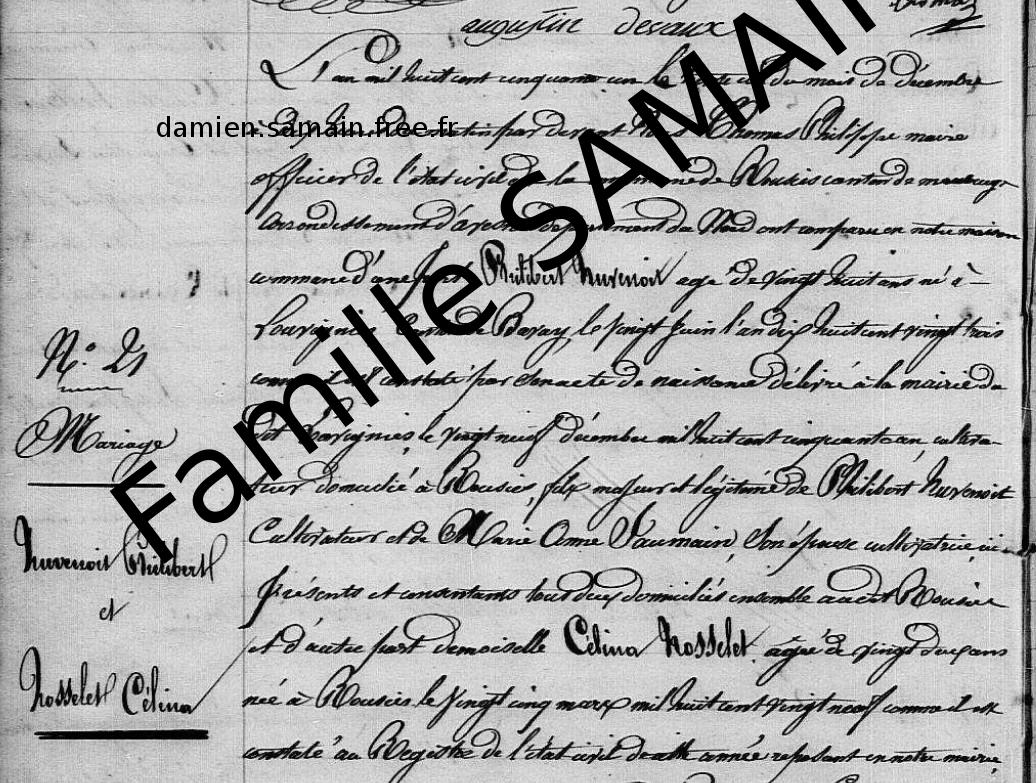 augustin desaux
L'an mil huit cent cinquante un le du mois de décembre
damien.samain.free.fr
par devant Nous Thomas Philippe maire
officier de l'état civil de la commune de Rousies canton de maubeuge
arrondissement d'avesnes département du Nord ont comparu en notre maison
commune d'une part Philibert huvenoit agé de vingt huit ans né à
Louvignies Canton de Bavay le vingt Juin l'an dix huit cent vingt trois
comme il est constaté par Son acte de naissance délivré à la mairie du
N.º 21
dit Louvignies, le vingt neuf décembre mil huit cent cinquante un cultiva-
Mariage
teur domicilié à Rousies, fils majeur et légitime de Philibert huvenoit
Cultivateur et de Marie Anne Saumain, Son épouse cultivatrice ici
huvenoit Philibert
présents et consentants tous deux domiciliés ensemble audit Rousies
et
et d'autre part demoiselle Célina hosselet, agée de vingt deux ans
hosselet Célina
née à Rousies le vingt cinq mars mil huit cent vingt neuf comme il est
constaté au Registre de l'état civil de dite année reposant en notre mairie
Famille SAMAIN